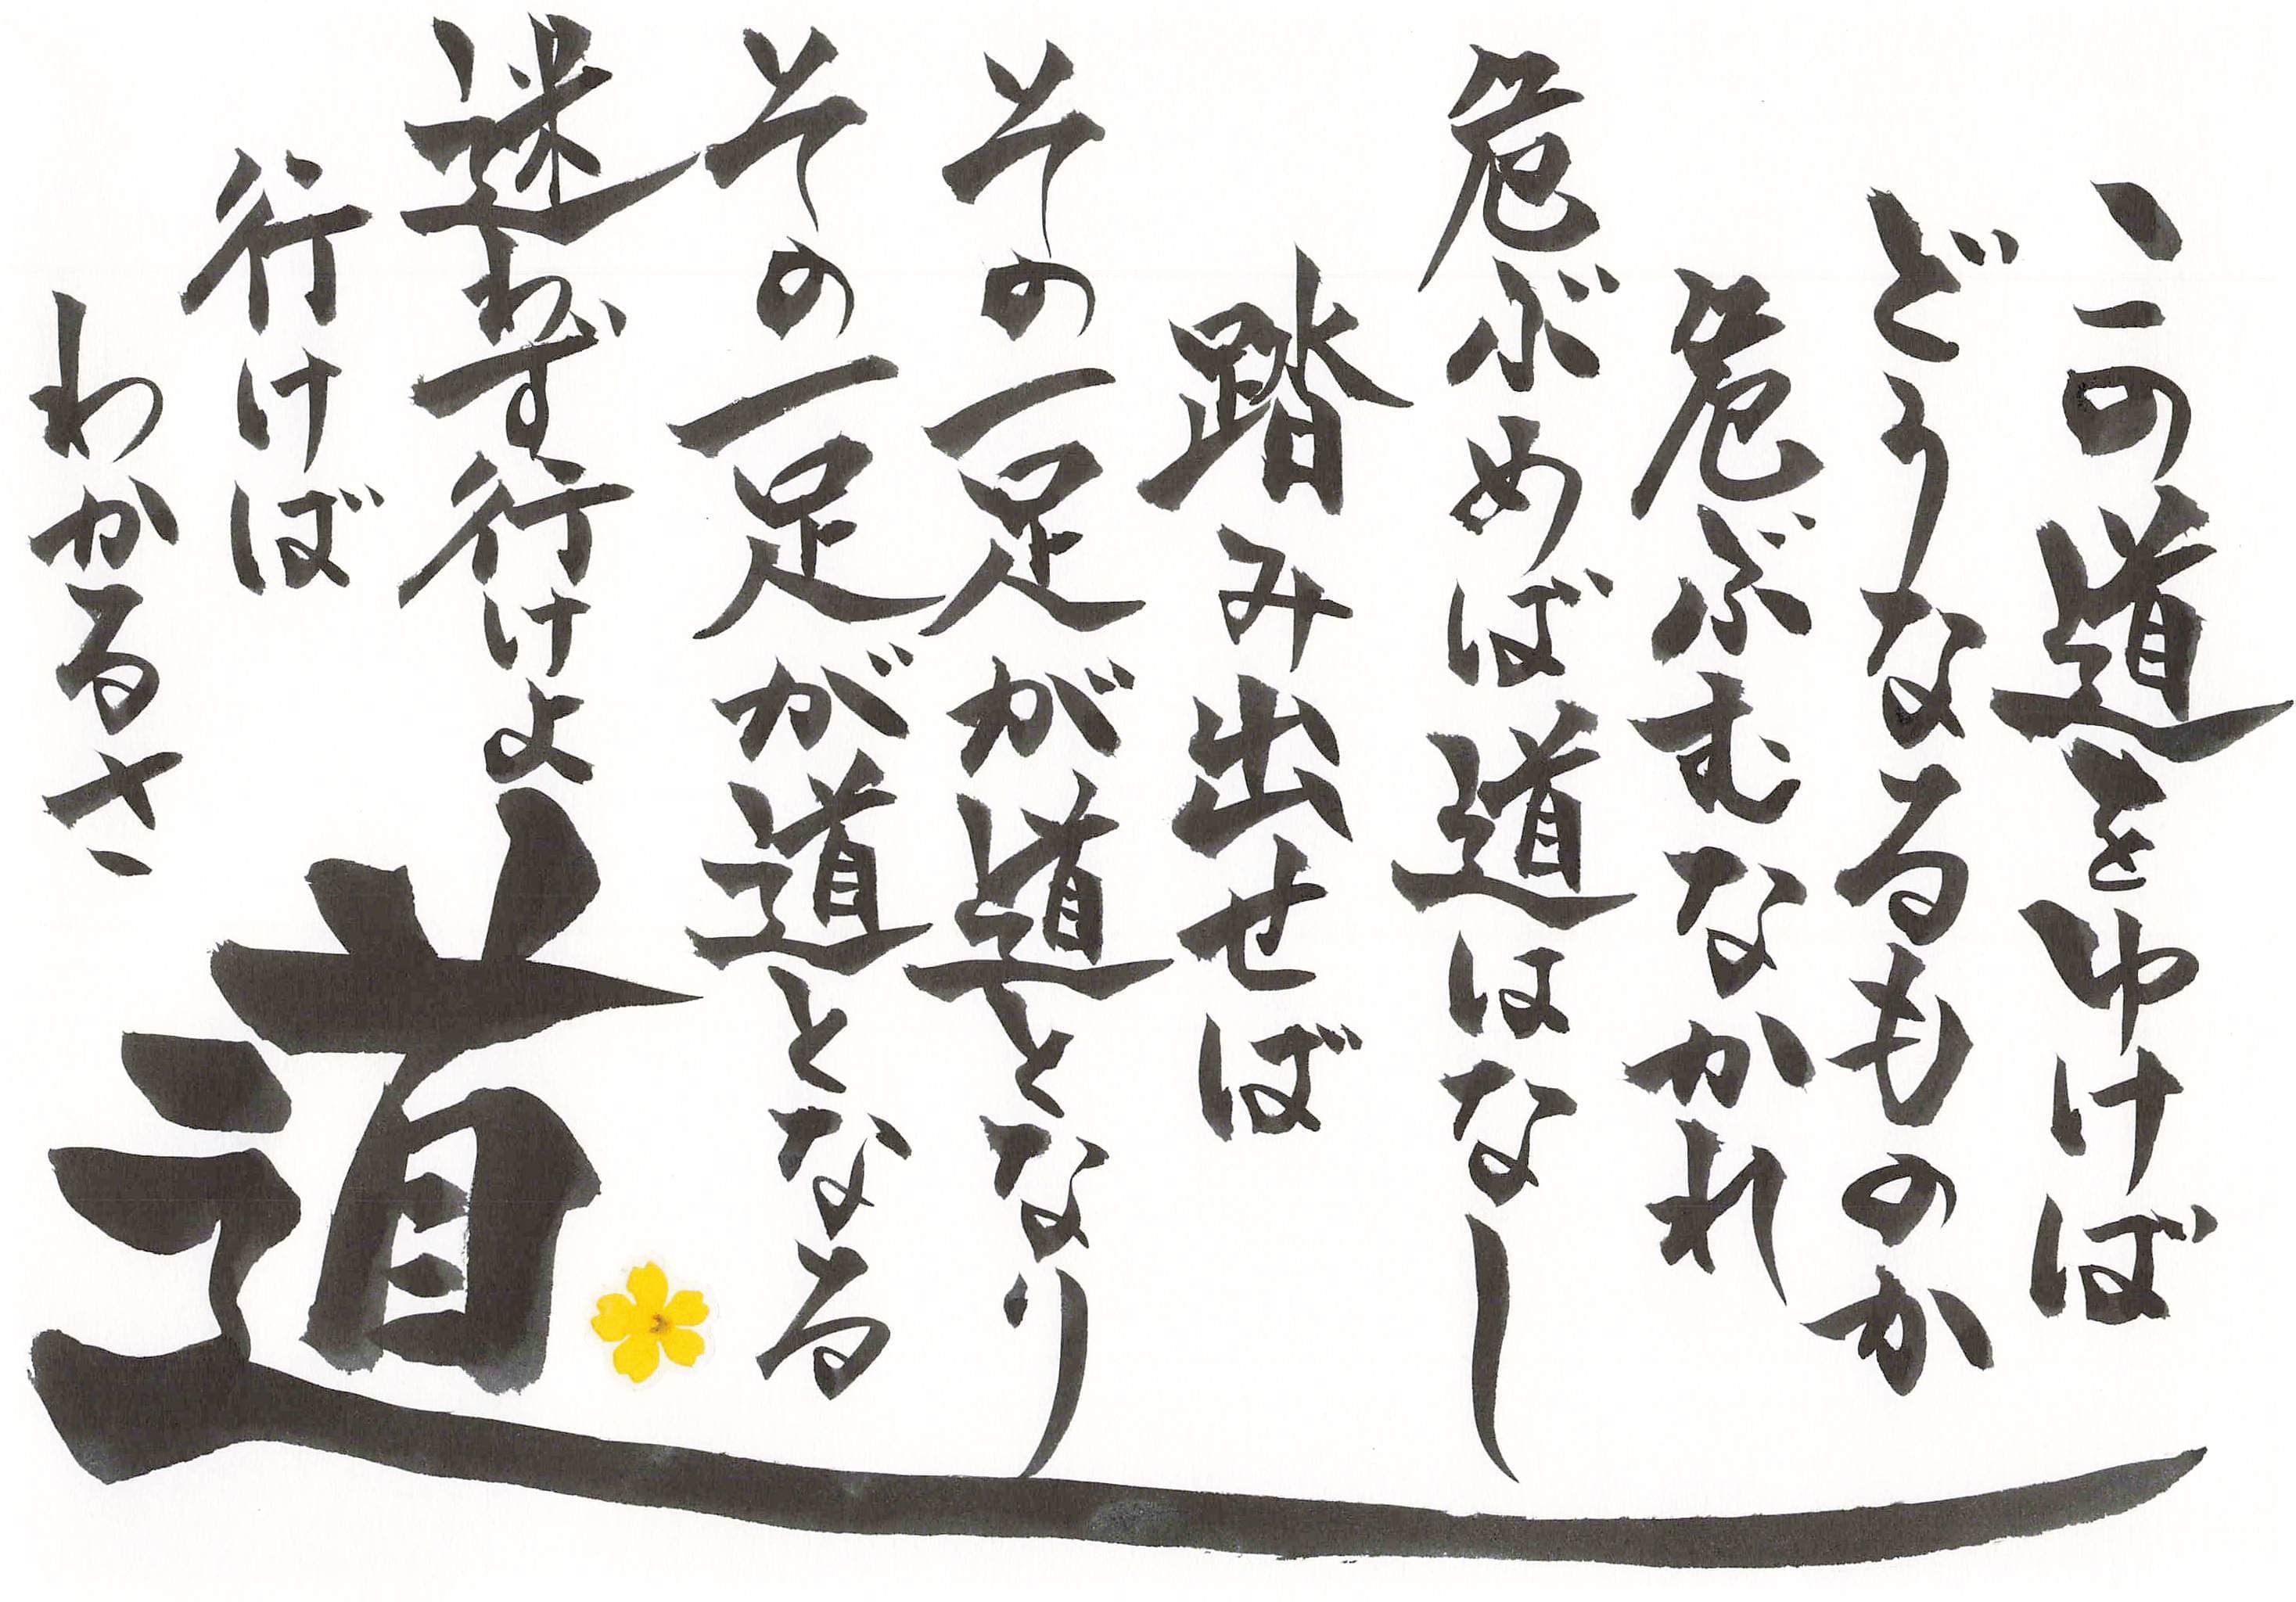 この道をゆけば
どうなるものか
危ぶむなかれ
危ぶめば道はなし
踏み出せば
その一足が道となり
その一足が道となる
迷わず行けよ
行けば
わかるさ
道